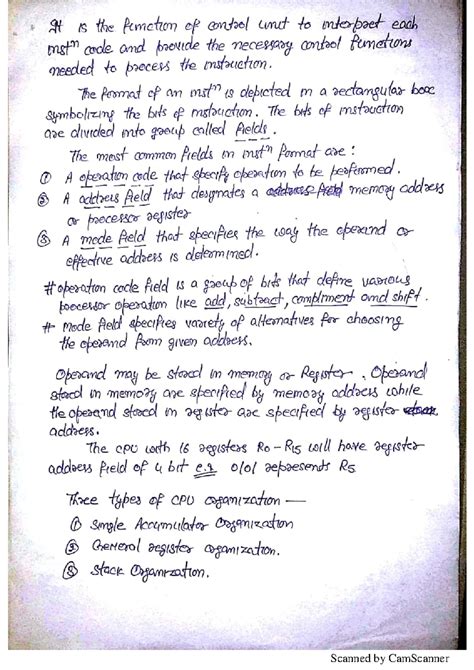 It is the function of control unit to interpret each
instn code and provide the necessary control functions
needed to process the instruction.
The format of an instn is depicted in a rectangular box
symbolizing the bits of instruction. The bits of instruction
are divided into group called fields.
The most common fields in instn format are :
① A operation code that specify operation to be performed.
② A address field that designates a memory address
or processor register
③ A mode field that specifies the way the operand or
effective address is determined.
# operation code field is a group of bits that define various
processor operation like add, subtract, compliment and shift.
# mode field specifies variety of alternatives for choosing
the operand from given address.
Operand may be stored in memory or Register. Operand
stored in memory are specified by memory address while
the operand stored in register are specified by register
address.
The CPU with 16 registers R0 - R15 will have register
address field of 4 bit e.g 0101 represents R5
Three types of CPU organization —
① Single Accumulator Organization
② General register organization.
③ Stack Organization.
Scanned by CamScanner